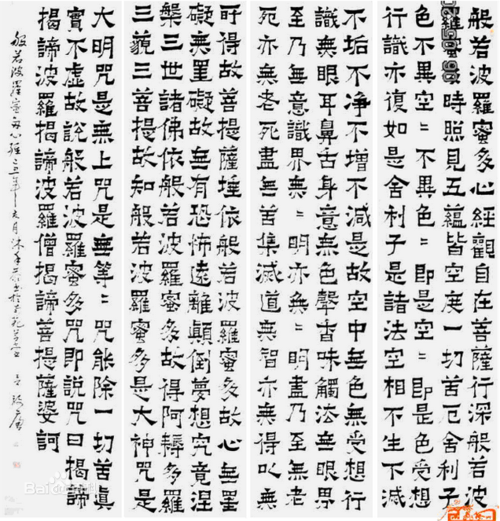 般若波羅蜜多心經觀自在菩薩行深般若波
羅蜜多時照見五蘊皆空度一切苦厄舍利子
色不異空〻不異色〻即是空〻即是色受想
行識亦復如是舍利子是諸法空相不生不滅
不垢不净不增不減是故空中無色無受想行
識無眼耳鼻舌身意無色聲香味觸法無眼界
至乃無意識界無〻明亦無〻明盡乃至無老
死亦無老死盡無苦集滅道無智亦無得以無
所得故菩提薩埵依般若波羅蜜多故心無罣
礙無罣礙故無有恐怖遠離顛倒夢想究竟涅
槃三世諸佛依般若波羅蜜多故得阿耨多羅
三藐三菩提故知般若波羅蜜多是大神咒是
大明咒是無上咒是無等〻咒能除一切苦真
實不虛故說般若波羅蜜多咒即說咒曰揭諦
揭諦波羅揭諦波羅僧揭諦菩提薩婆訶
般若波羅蜜多心經
Baidu百科